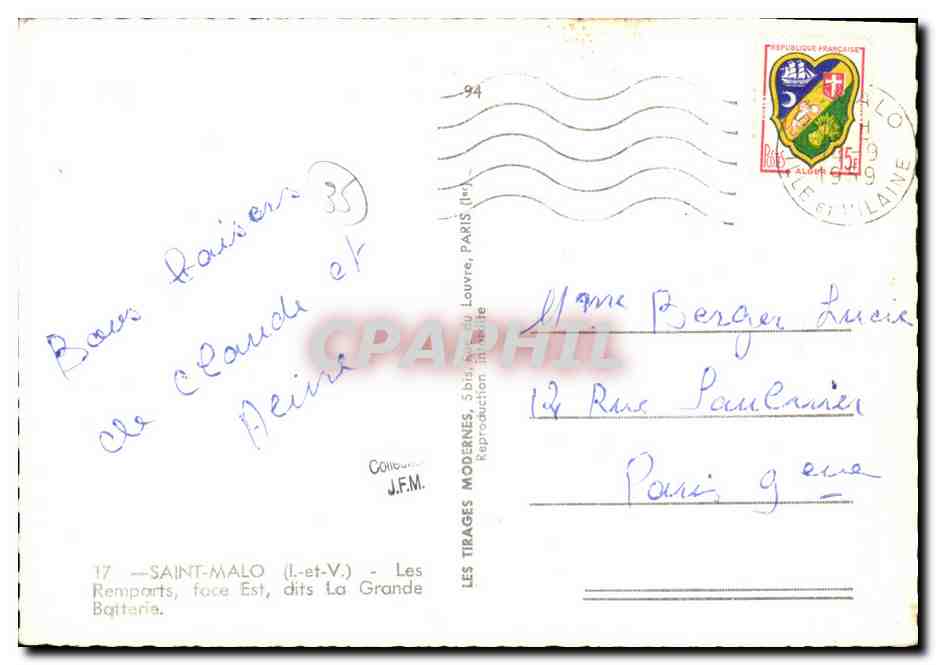 94
RÉPUBLIQUE FRANÇAISE
15F
ALGER
ALO
H
-9
1959
ILLE ET VILAINE
35
Bons baisers
de Claude et
LES TIRAGES MODERNES, 5 bis, Rue du Louvre, PARIS (Ier)
Reproduction interdite
CPAPHIL
Mme Berger Lucie
12 Rue Saulnier
Paris 9eme
J.F.M.
17 —SAINT-MALO (I.-et-V.) - Les
Remparts, face Est, dits La Grande
Batterie.